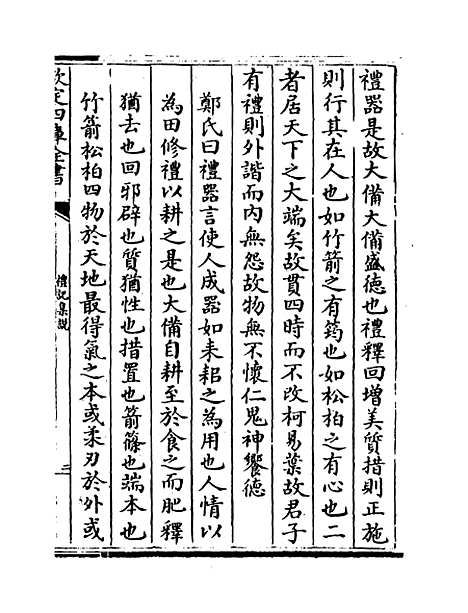 禮器是故大備大備盛德也禮釋回增美質措則正施
則行其在人也如竹箭之有筠也如松柏之有心也二
者居天下之大端矣故貫四時而不改柯易葉故君子
有禮則外諧而內無怨故物無不懷仁鬼神饗德
鄭氏曰禮器言使人成器如耒耜之為用也人情以
為田修禮以耕之是也大備自耕至於食之而肥釋
猶去也回邪辟也質猶性也措置也箭篠也端本也
竹箭松柏四物於天地最得氣之本或柔刃於外或
欽定四庫全書
禮記集說
二